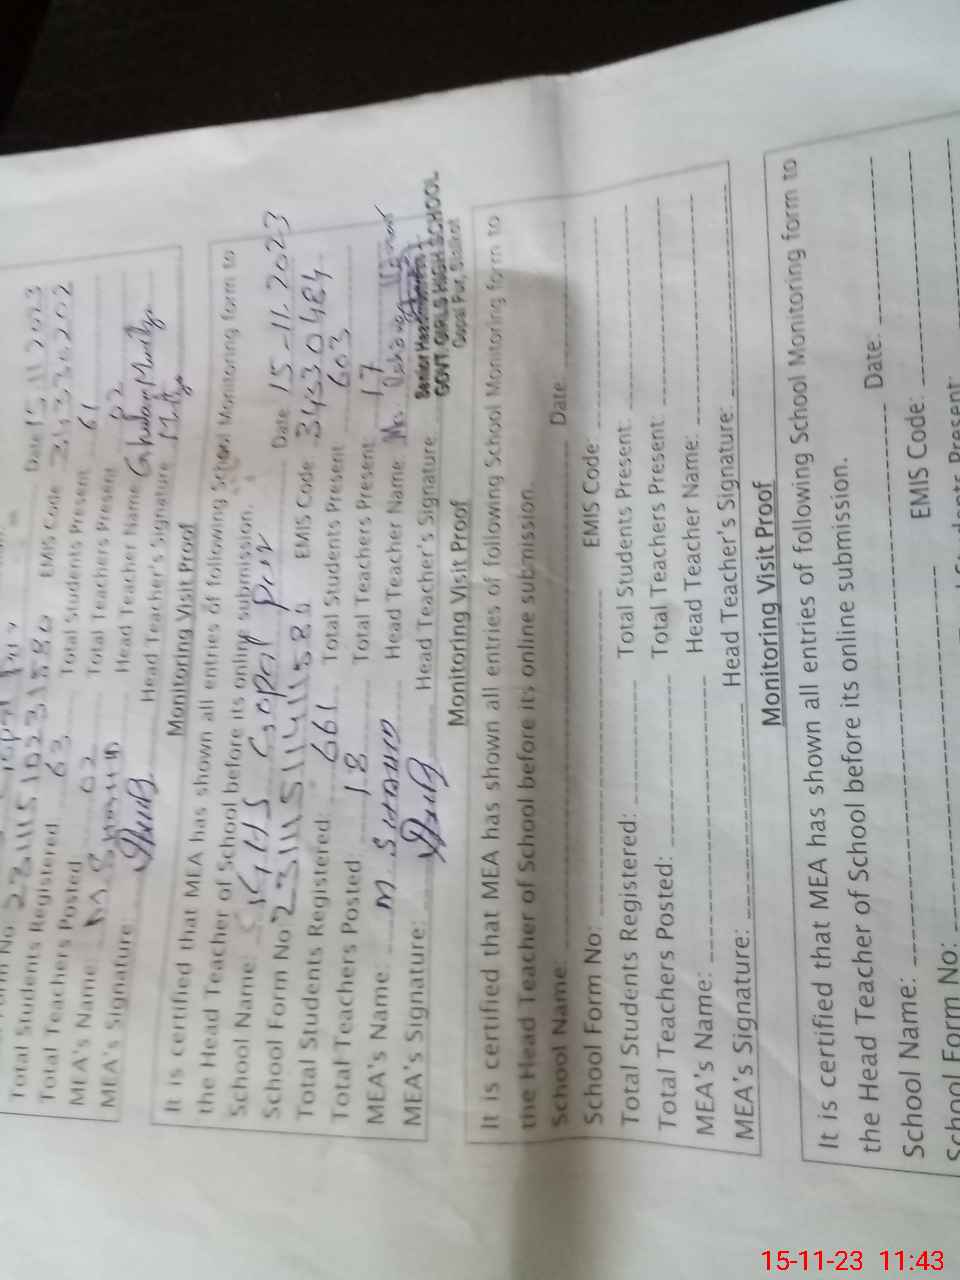 Date 15.11.2023
EMIS Code
Total Students Registered 63 Total Students Present 61
Total Teachers Posted 02 Total Teachers Present 02
MEA's Name: Head Teacher Name
MEA's Signature: Head Teacher's Signature
Monitoring Visit Proof
It is certified that MEA has shown all entries of following School Monitoring form to
the Head Teacher of School before its online submission.
School Name: GGHS Gopal Pur Date 15-11.2023
School Form No EMIS Code 34330484
Total Students Registered: 661 Total Students Present 603
Total Teachers Posted 18 Total Teachers Present 17
MEA's Name: M SHAHID Head Teacher Name:
MEA's Signature: Head Teacher's Signature
GOVT. GIRLS HIGH SCHOOL
Gopal Pur, Sialkot
Monitoring Visit Proof
It is certified that MEA has shown all entries of following School Monitoring form to
the Head Teacher of School before its online submission.
School Name: Date:
School Form No: EMIS Code
Total Students Registered: Total Students Present:
Total Teachers Posted: Total Teachers Present
MEA's Name: Head Teacher Name:
MEA's Signature: Head Teacher's Signature:
Monitoring Visit Proof
It is certified that MEA has shown all entries of following School Monitoring form to
the Head Teacher of School before its online submission.
School Name: Date:
School Form No: EMIS Code:
Students Present:
15-11-23 11:43